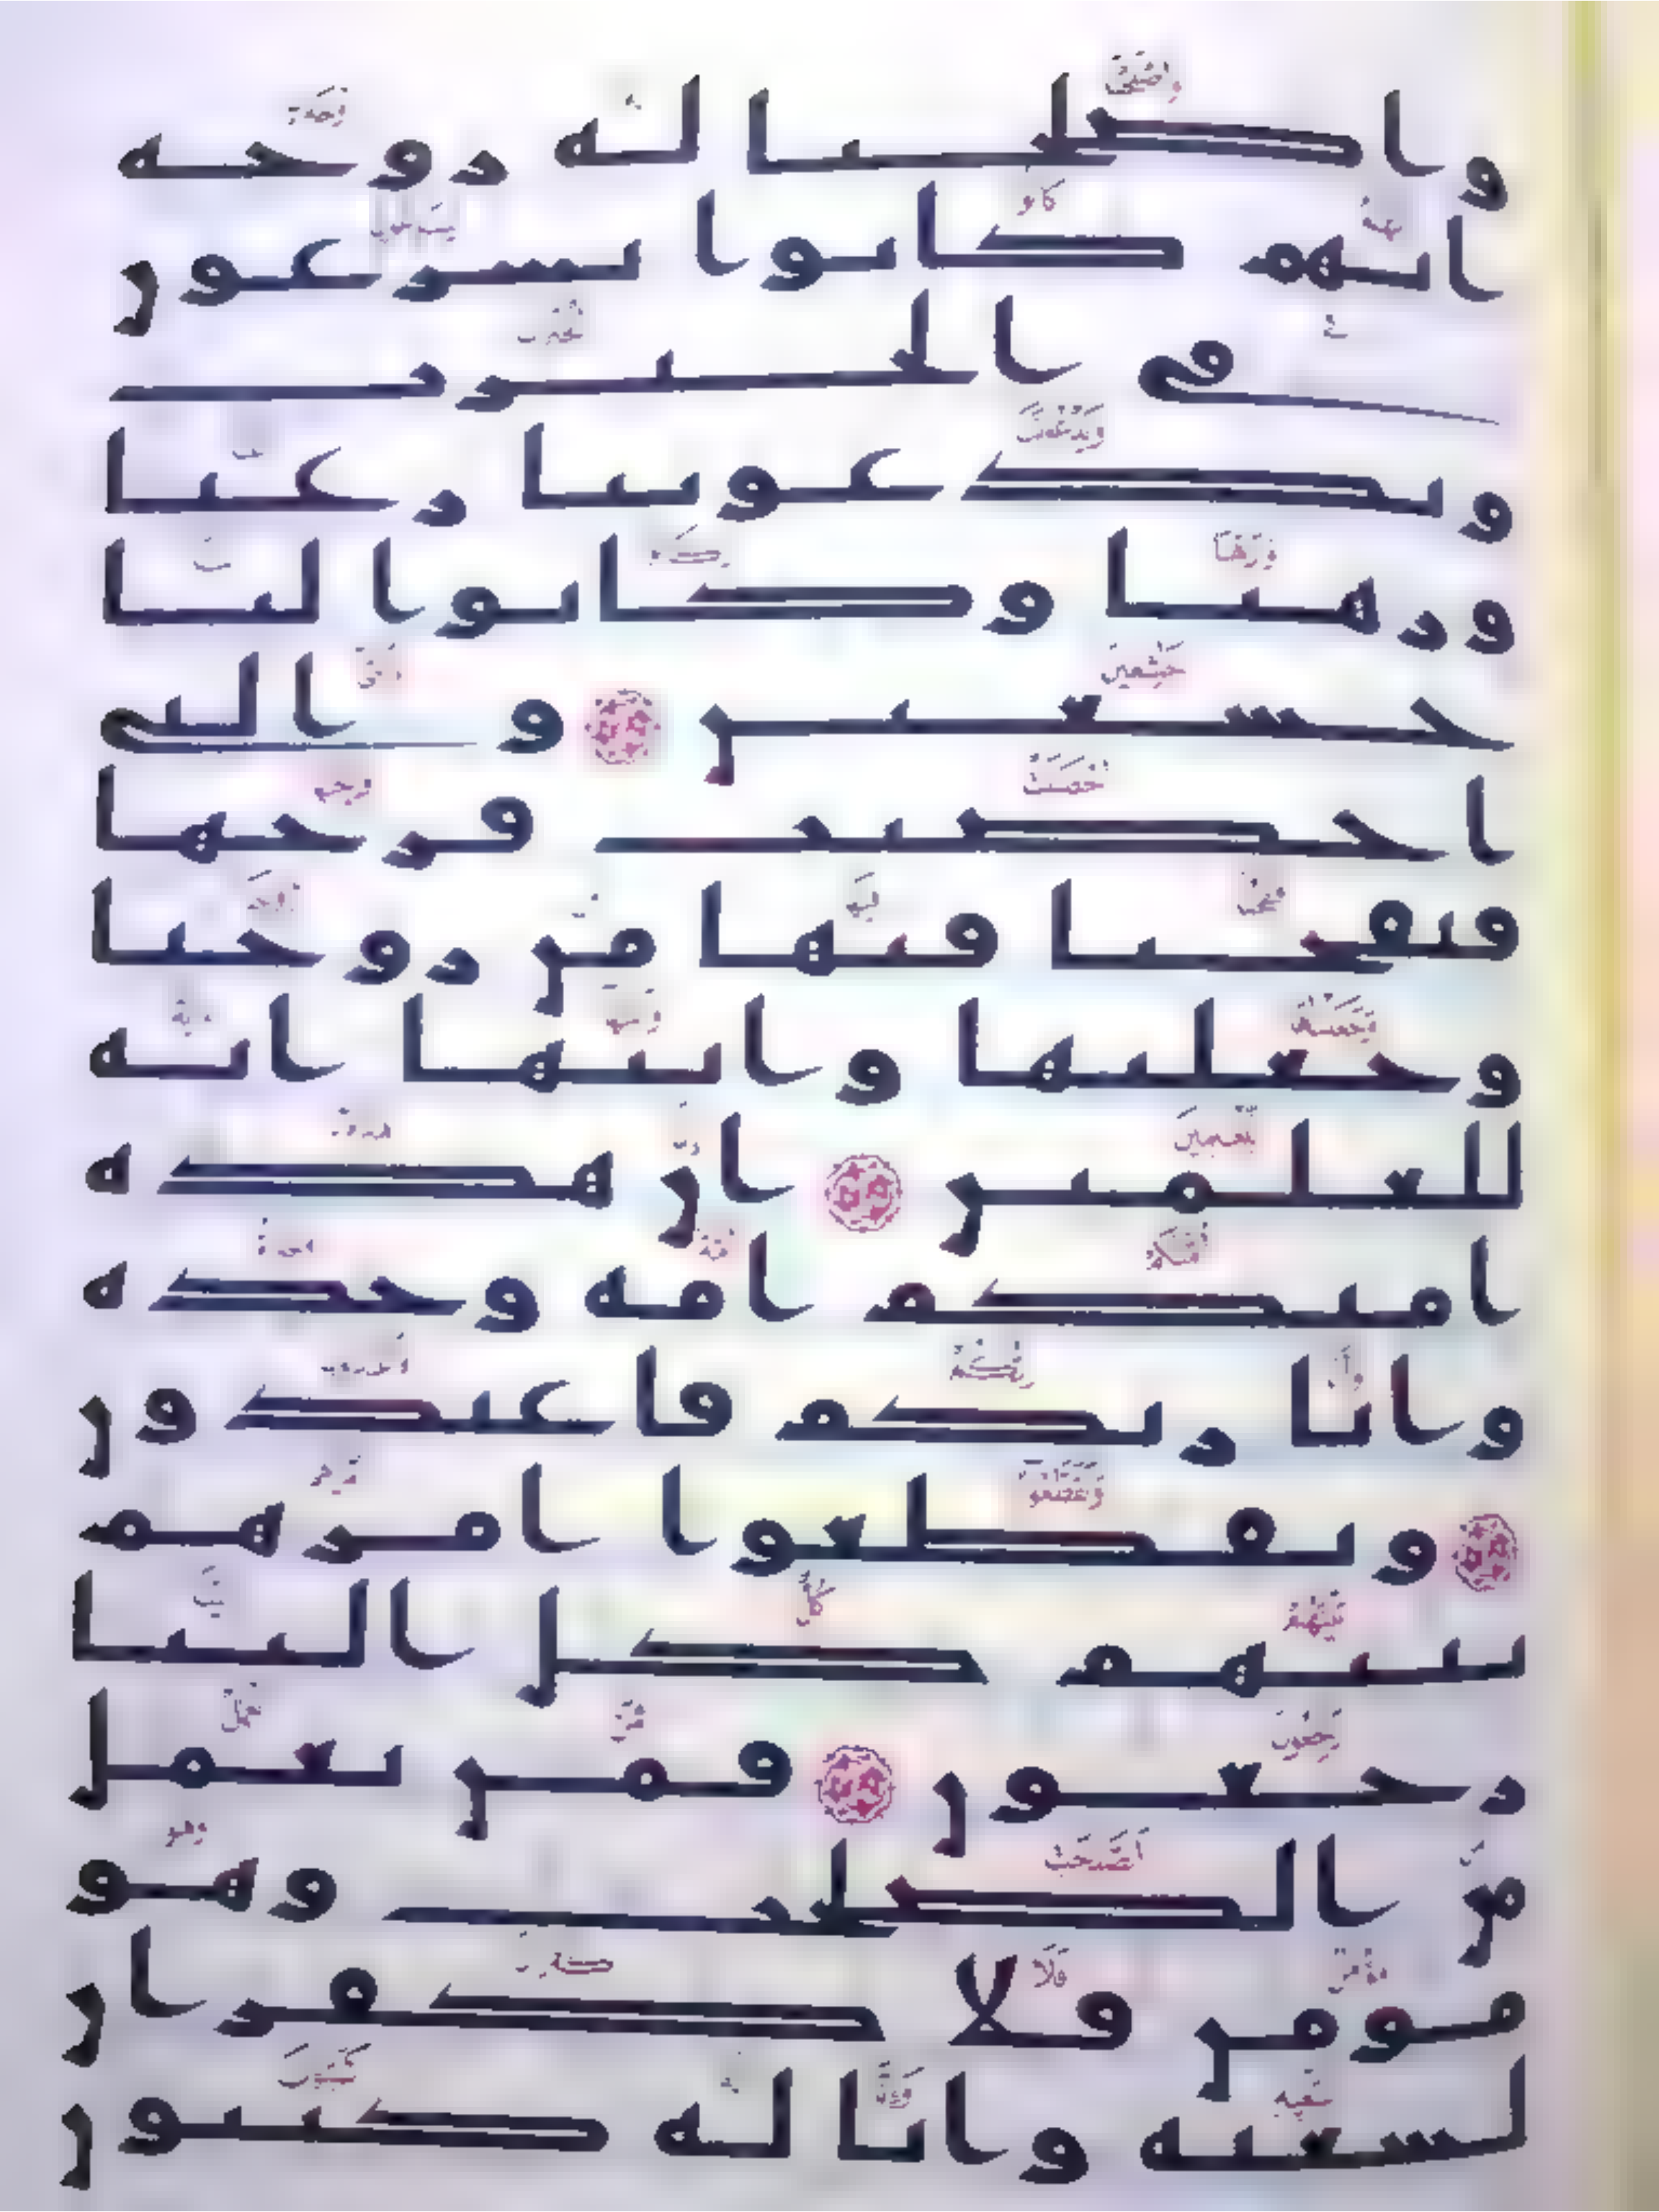 واصلحنا له زوجه
انهم كانوا يسرعون
في الخيرت
ويدعوننا رغبا
ورهبا وكانوا لنا
خشعين والتي
احصنت فرجها
فنفخنا فيها من روحنا
وجعلنها وابنها ايه
للعلمين ان هذه
امتكم امه وحده
وانا ربكم فاعبدون
وتقطعوا امرهم
بينهم كل الينا
رجعون فمن يعمل
من الصلحت وهو
مومن فلا كفران
لسعيه وانا له كتبون